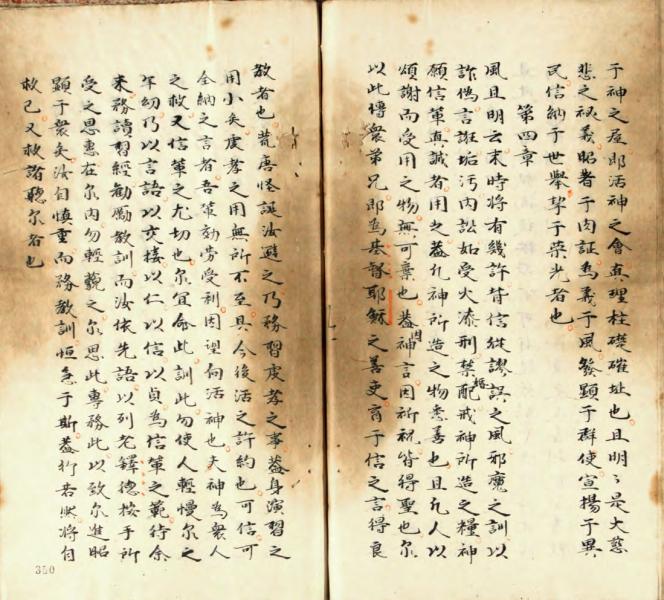 于神之屋即活神之會真理柱礎確址也且明〻是大慈
悲之秘義昭著于肉証為義于風發顯于群使宣揚于異
民信納于世舉挚于荣光者也
第四章
風且明云末時將有幾許背信従謬誤之風邪魔之訓以
詐偽言誑垢污內訟如受火漆刑禁配拒戒神所造之糧神
願信輩真誠者用之葢凡神所造之物悉善也且凡人以
頌謝而受用之物無可棄也葢因神言因所祝皆得聖也尔
以此傳衆弟兄即為基督耶穌之善吏育于信之言得良
教者也荒唐怪誕汝避之乃務習虔孝之事葢身演習之
用小矣虔孝之用無所不至具今後活之許約也可信可
全納之言者吾輩劬勞受利因望向活神也夫神為衆人
之救又信輩之尤切也尔宜命此訓此勿使人輕慢尔之
年幼乃以言語以交接以仁以信以貞為信輩之範待余
来務讀習經勸勵教訓而汝依先語以列老鐸德按手所
受之恩惠在尔內勿輕藐之尔思此專務此以致尔進昭
顯于衆矣汝自慎重而務教訓恒急于斯葢行若然將自
救己又救諸聽尔者也
350